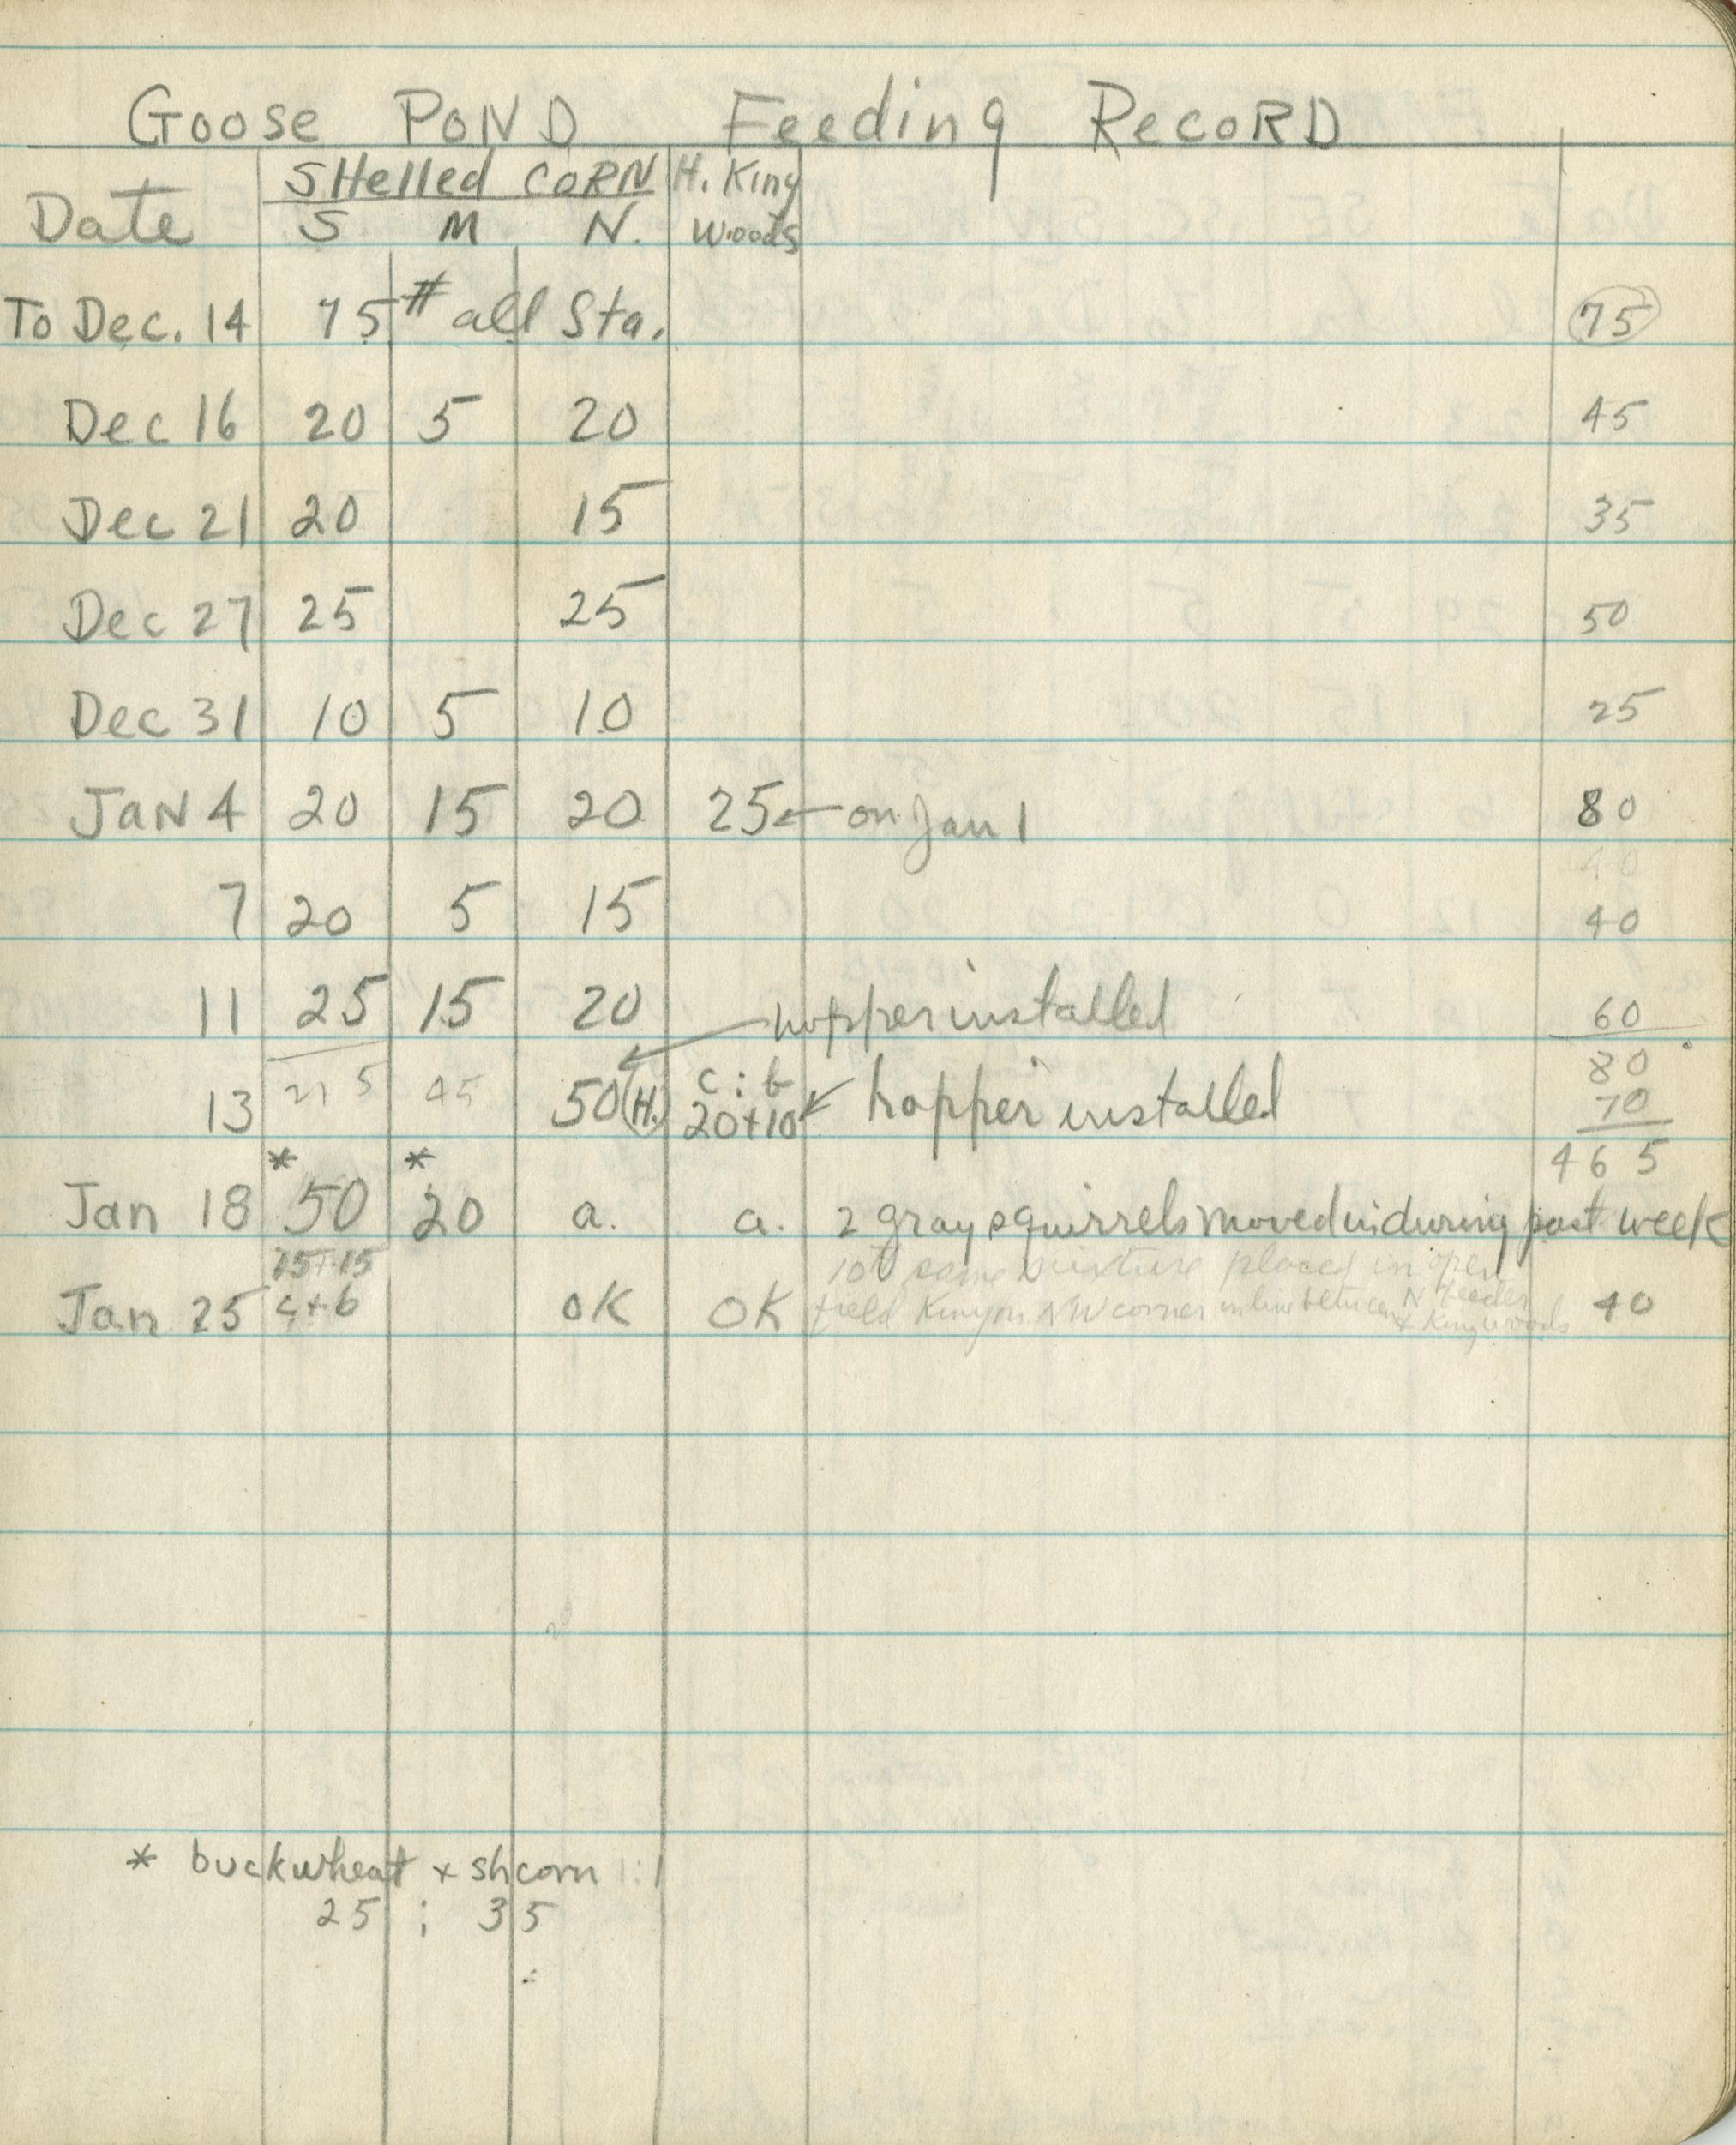 Goose POND Feeding RecoRD
Date SHelled CORN H. King Woods
S M N.
To Dec. 14 75 # all Sta. 75
Dec 16 20 5 20 45
Dec 21 20 15 35
Dec 27 25 25 50
Dec 31 10 5 10 25
JAN 4 20 15 20 25 ← on Jan 1 80
40
7 20 5 15 40
11 25 15 20 hopper installed 60
13 45 50 (H.) c : b 20+10 hopper installed 80
70
465
Jan 18 * 50 * 20 a. a. 2 gray squirrels moved in during past week
15+15 10# same mixture placed in open
Jan 25 c+b OK OK field NW corner in line between N feeder & King woods 40
* buckwheat + sh corn 1:1
25 ; 35